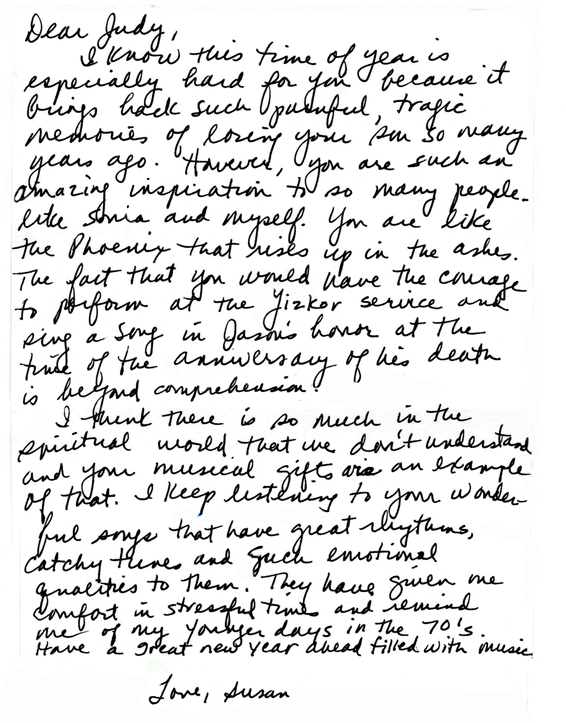 Dear Judy,
I know this time of year is
especially hard for you because it
brings back such painful, tragic
memories of losing your son so many
years ago. However, you are such an
amazing inspiration to so many people-
like Sonia and myself. You are like
the Phoenix that rises up in the ashes.
The fact that you would have the courage
to perform at the Yizkor service and
sing a song in Jason's honor at the
time of the anniversary of his death
is beyond comprehension!
I think there is so much in the
spiritual world that we don't understand
and your musical gifts are an example
of that. I keep listening to your wonder-
ful songs that have great rhythms,
catchy tunes and such emotional
qualities to them. They have given me
comfort in stressful times and remind
me of my younger days in the 70's.
Have a great new year ahead filled with music
Love, Susan